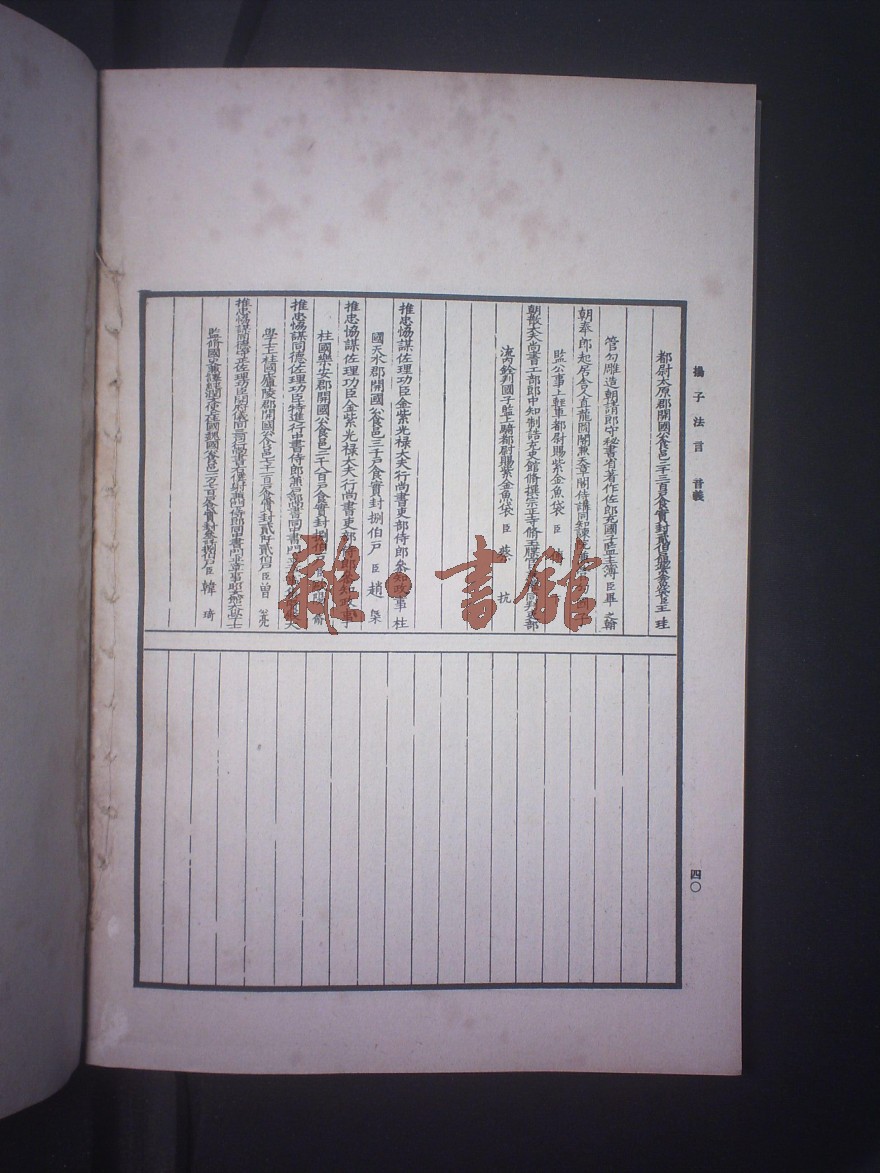 揚子法言 音義
都尉太原郡開國公食邑二千三百戶食實封貳伯戶賜紫金魚袋臣王珪
管勾雕造朝請郎守秘書省著作佐郎充國子監主簿臣畢之翰
朝奉郎起居舍人直龍圖閣兼天章閣侍講同知諫院
監公事上輕車都尉賜紫金魚袋臣傅
朝散大夫尚書工部郎中知制誥充史館脩撰宗正寺脩玉牒官判吏部
流內銓判國子監上騎都尉賜紫金魚袋臣蔡抗
推忠協謀佐理功臣金紫光祿大夫行尚書吏部侍郎叅知政事柱
國天水郡開國公食邑三千戶食實封捌伯戶臣趙槩
推忠協謀佐理功臣金紫光祿大夫行尚書吏部侍郎叅知政事
柱國樂安郡開國公食邑二千八百戶食實封捌伯戶臣歐陽脩
推忠協謀同德佐理功臣特進行中書侍郎兼戶部尚書同中書門下平章事集賢殿大
學士上柱國廬陵郡開國公食邑七千一百戶食實封貳阡貳伯戶臣曾公亮
推忠協謀同德守正佐理功臣開府儀同三司行尚書右僕射兼門下侍郎同中書門下平章事昭文館大學士
監修國史兼譯經潤文使上柱國魏國公食邑一万七百戶食實封叁阡捌伯戶臣韓琦
雜·書館
四〇